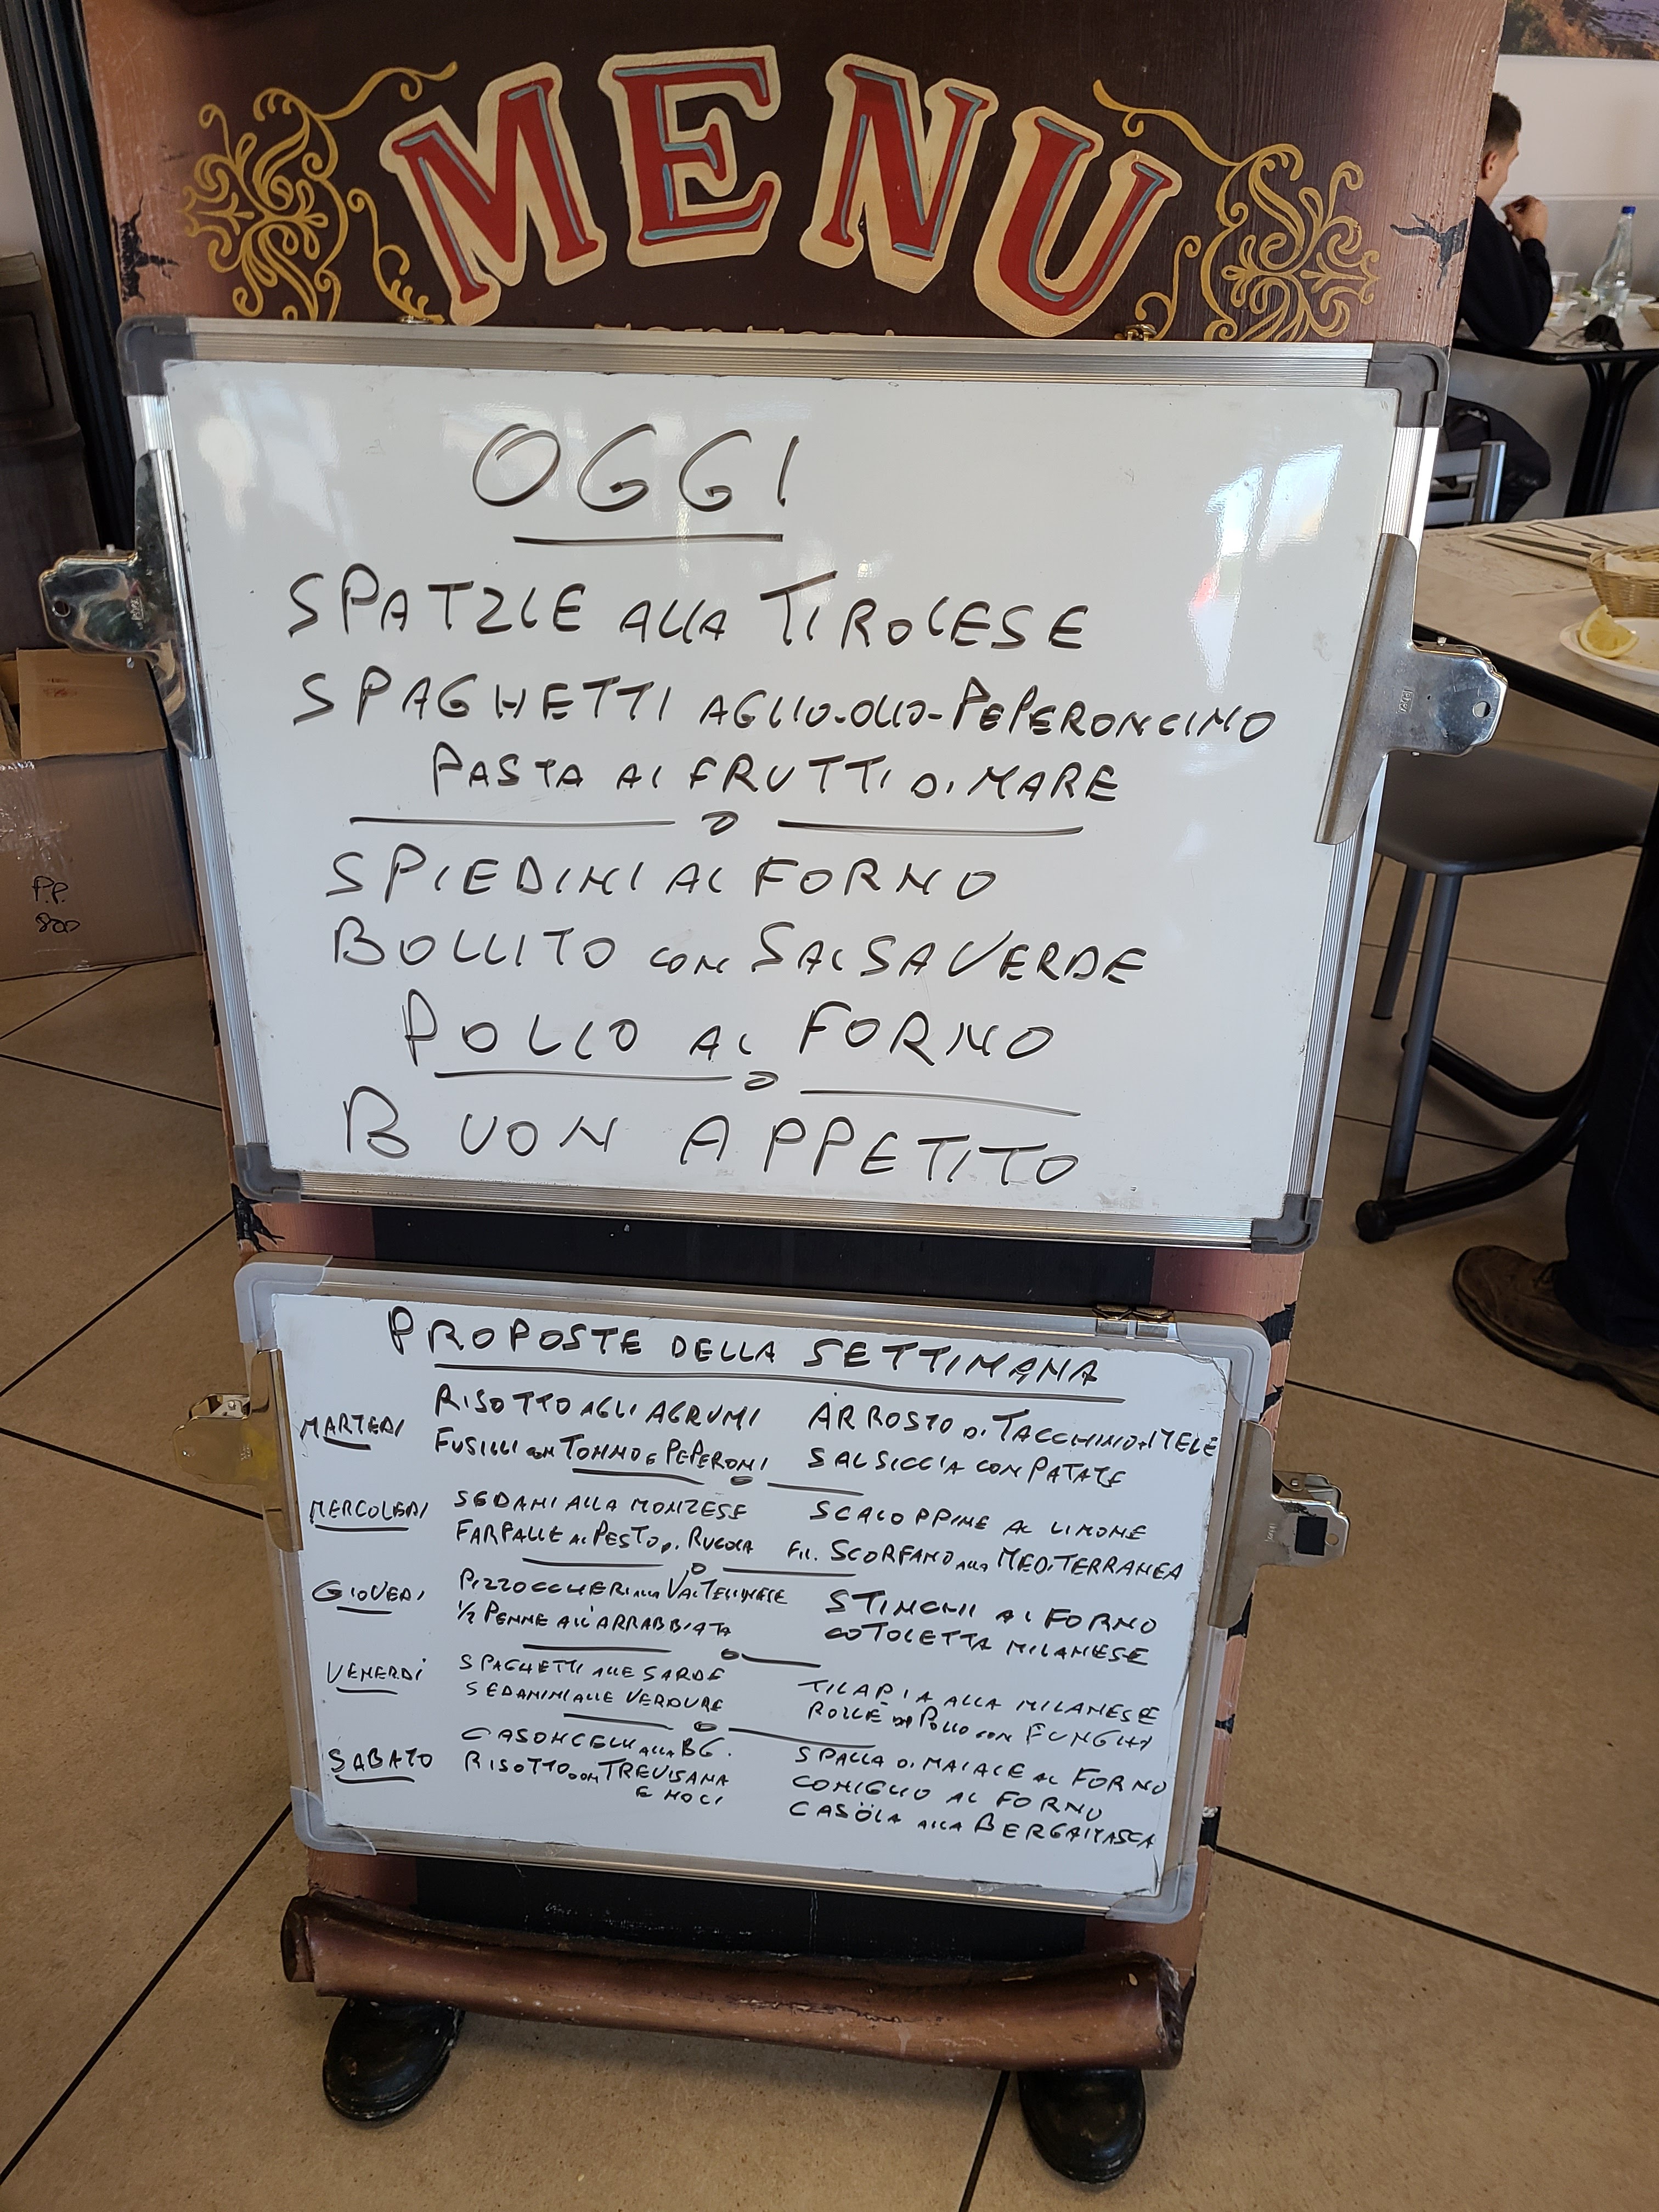 MENU
OGGI
SPATZLE ALLA TIROLESE
SPAGHETTI AGLIO-OLIO-PEPERONCINO
PASTA AI FRUTTI DI MARE
SPIEDINI AL FORNO
BOLLITO CON SALSA VERDE
POLLO AL FORNO
BUON APPETITO
P.P.
800
PROPOSTE DELLA SETTIMANA
MARTEDI
RISOTTO AGLI AGRUMI
FUSILLI CON TONNO E PEPERONI
ARROSTO DI TACCHINO MELE
SALSICCIA CON PATATE
MERCOLEDI
SEDANI ALLA MONZESE
FARFALLE AL PESTO DI RUGOLA
SCALOPPINE AL LIMONE
FIL. SCORFANO ALLA MEDITERRANEA
GIOVEDI
PIZZOCCHERI ALLA VALTELLINESE
1/2 PENNE ALL'ARRABBIATA
STINCHI AL FORNO
COTOLETTA MILANESE
VENERDÌ
SPAGHETTI ALLE SARDE
SEDANINI ALLE VERDURE
TILAPIA ALLA MILANESE
ROLLE DI POLLO CON FUNGHI
SABATO
CASONCELLI ALLA BG.
RISOTTO CON TREVISANA
E NOCI
SPALLA DI MAIALE AL FORNO
CONIGLIO AL FORNO
CASÖLA ALLA BERGAMASCA